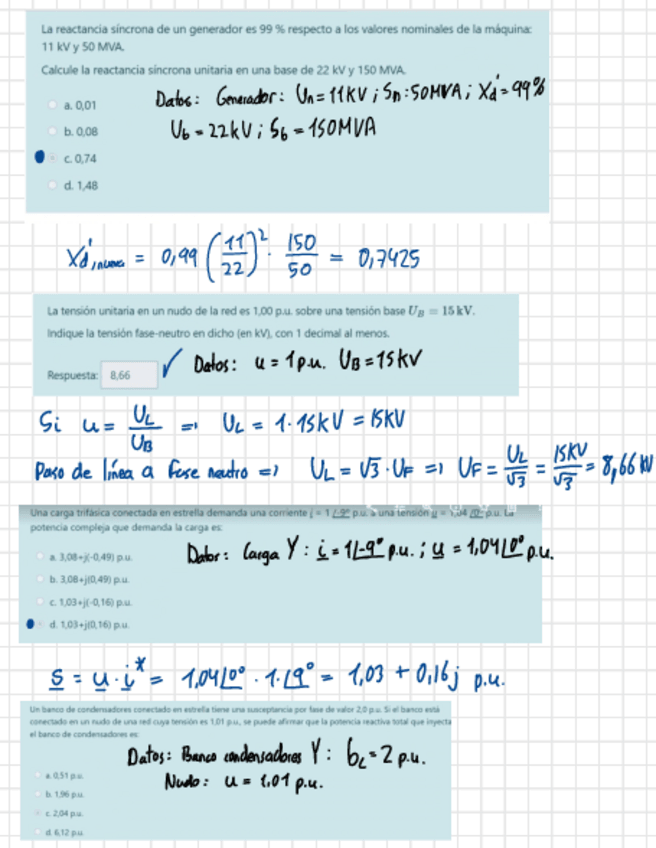 La reactancia síncrona de un generador es 99 % respecto a los valores nominales de la máquina:
11 kV y 50 MVA.
Calcule la reactancia síncrona unitaria en una base de 22 kV y 150 MVA.
Datos: Generador: Un = 11KV ; Sn: 50MVA ; Xd' = 99%
a. 0,01
Ub = 22kV ; Sb = 150MVA
b. 0,08
c. 0,74
d. 1,48
Xd',nueva = 0,99 (11/22)² · 150/50 = 0,7425
La tensión unitaria en un nudo de la red es 1,00 p.u. sobre una tensión base U_B = 15 kV.
Indique la tensión fase-neutro en dicho (en kV), con 1 decimal al menos.
Respuesta: 8,66 ✓ Datos: u = 1 p.u. UB = 15kV
Si u = UL/UB => UL = 1·15kV = 15KV
Paso de línea a fase neutro => UL = √3 · UF => UF = UL/√3 = 15KV/√3 = 8,66 kV
Una carga trifásica conectada en estrella demanda una corriente i = 1 /-9° p.u. a una tensión u = 1,04 /0° p.u. La
potencia compleja que demanda la carga es:
Datos: Carga Y : i = 1∠-9° p.u. ; u = 1,04∠0° p.u.
a. 3,08+j(-0,49) p.u.
b. 3,08+j(0,49) p.u.
c. 1,03+j(-0,16) p.u.
d. 1,03+j(0,16) p.u.
S = u · i* = 1,04∠0° · 1·∠9° = 1,03 + 0,16j p.u.
Un banco de condensadores conectado en estrella tiene una susceptancia por fase de valor 2,0 p.u. Si el banco está
conectado en un nudo de una red cuya tensión es 1,01 p.u., se puede afirmar que la potencia reactiva total que inyecta
el banco de condensadores es:
Datos: Banco condensadores Y : bc = 2 p.u.
Nudo: u = 1,01 p.u.
a. 0,51 p.u.
b. 1,96 p.u.
c. 2,04 p.u.
d. 6,12 p.u.